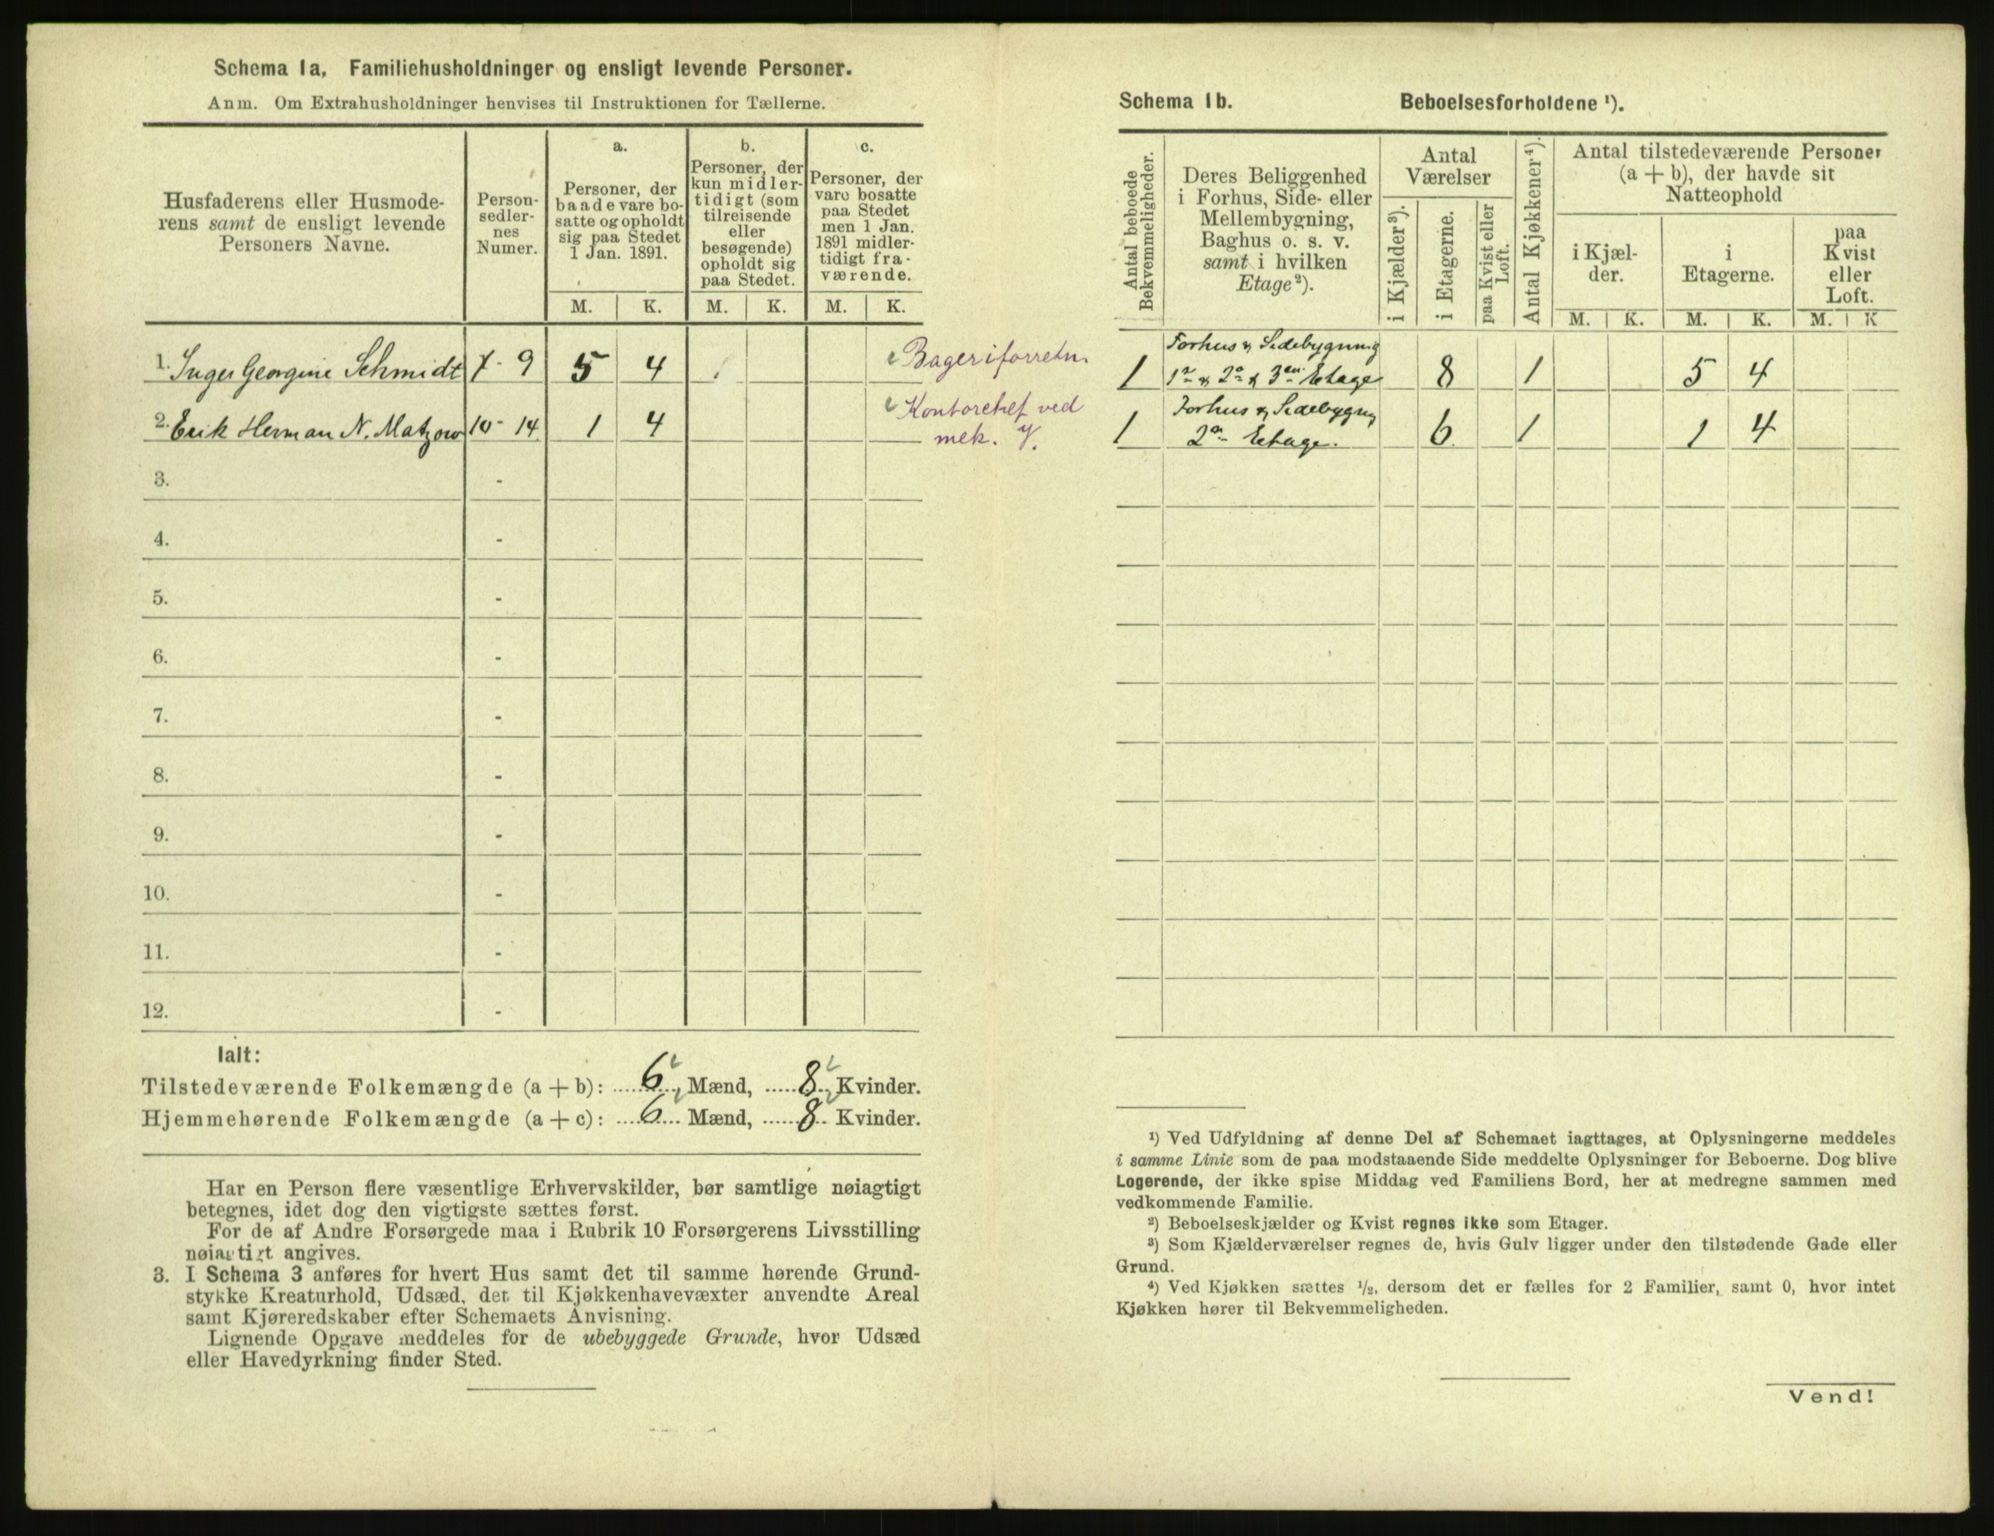 Schema 1a, Familiehusholdninger og ensligt levende Personer.
Anm. Om Extrahusholdninger henvises til Instruktionen for Tællerne.
Husfaderens eller Husmode-
rens samt de ensligt levende
Personers Navne.
Person-
sedler-
nes
Numer.
a.
Personer, der
baade vare bo-
satte og opholdt
sig paa Stedet
1 Jan. 1891.
b.
Personer, der
kun midler-
tidigt (som
tilreisende
eller
besøgende)
opholdt sig
paa Stedet.
c.
Personer, der
vare bosatte
paa Stedet
men 1 Jan.
1891 midler-
tidigt fra-
værende.
M. K. M. K. M. K.
1. Inger Georgine Schmidt 7 - 9 5 4 Bageriforretn.
2. Erik Herman N. Matzow 10 - 14 1 4 Kontorchef ved
mek. V.
3. -
4. -
5. -
6. -
7. -
8. -
9. -
10. -
11. -
12. -
Ialt:
Tilstedeværende Folkemængde (a + b): 6 Mænd, 8 Kvinder.
Hjemmehørende Folkemængde (a + c): 6 Mænd, 8 Kvinder.
Har en Person flere væsentlige Erhvervskilder, bør samtlige nøiagtigt
betegnes, idet dog den vigtigste sættes først.
For de af Andre Forsørgede maa i Rubrik 10 Forsørgerens Livsstilling
nøiagtigt angives.
3. I Schema 3 anføres for hvert Hus samt det til samme hørende Grund-
stykke Kreaturhold, Udsæd, det til Kjøkkenhavevæxter anvendte Areal
samt Kjøreredskaber efter Schemaets Anvisning.
Lignende Opgave meddeles for de ubebyggede Grunde, hvor Udsæd
eller Havedyrkning finder Sted.
Schema 1b. Beboelsesforholdene ¹).
Antal beboede
Bekvemmeligheder.
Deres Beliggenhed
i Forhus, Side- eller
Mellembygning,
Baghus o. s. v.
samt i hvilken
Etage²).
Antal
Værelser
i Kjælder³).
i Etagerne.
paa Kvist eller
Loft.
Antal Kjøkkener⁴).
Antal tilstedeværende Personer
(a + b), der havde sit
Natteophold
i Kjæl-
der.
i
Etagerne.
paa
Kvist
eller
Loft.
M. K. M. K. M. K
Forhus & Sidebygning
1 1ste & 2den & 3die Etage 8 1 5 4
Forhus & Sidebygning
1 2den Etage. 6 1 1 4
¹) Ved Udfyldning af denne Del af Schemaet iagttages, at Oplysningerne meddeles
i samme Linie som de paa modstaaende Side meddelte Oplysninger for Beboerne. Dog blive
Logerende, der ikke spise Middag ved Familiens Bord, her at medregne sammen med
vedkommende Familie.
²) Beboelseskjælder og Kvist regnes ikke som Etager.
³) Som Kjælderværelser regnes de, hvis Gulv ligger under den tilstødende Gade eller
Grund.
⁴) Ved Kjøkken sættes ½, dersom det er fælles for 2 Familier, samt 0, hvor intet
Kjøkken hører til Bekvemmeligheden.
Vend!